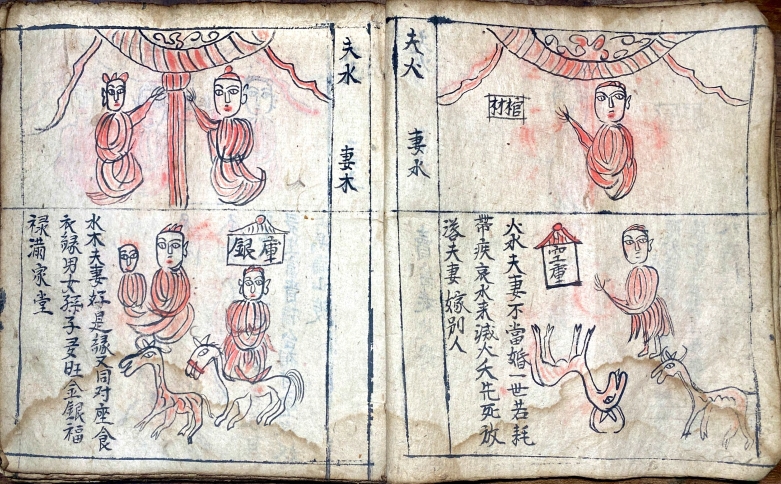 夫火 妻水
棺材
空庫
火水夫妻不當婚一世苦耗
帶疾哀水來滅火夫先死放
落夫妻嫁別人
夫水 妻木
銀庫
水木夫妻好是緣又同对座食
衣緑男女孫子多旺金銀福
禄满家堂